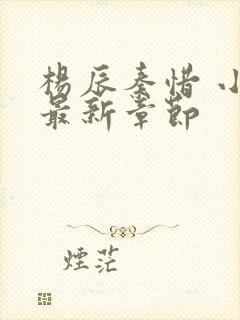 楊辰秦惜 小
最新章節
煙茫